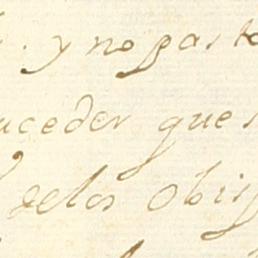 y no gasta
suceder que s
delos Obisp